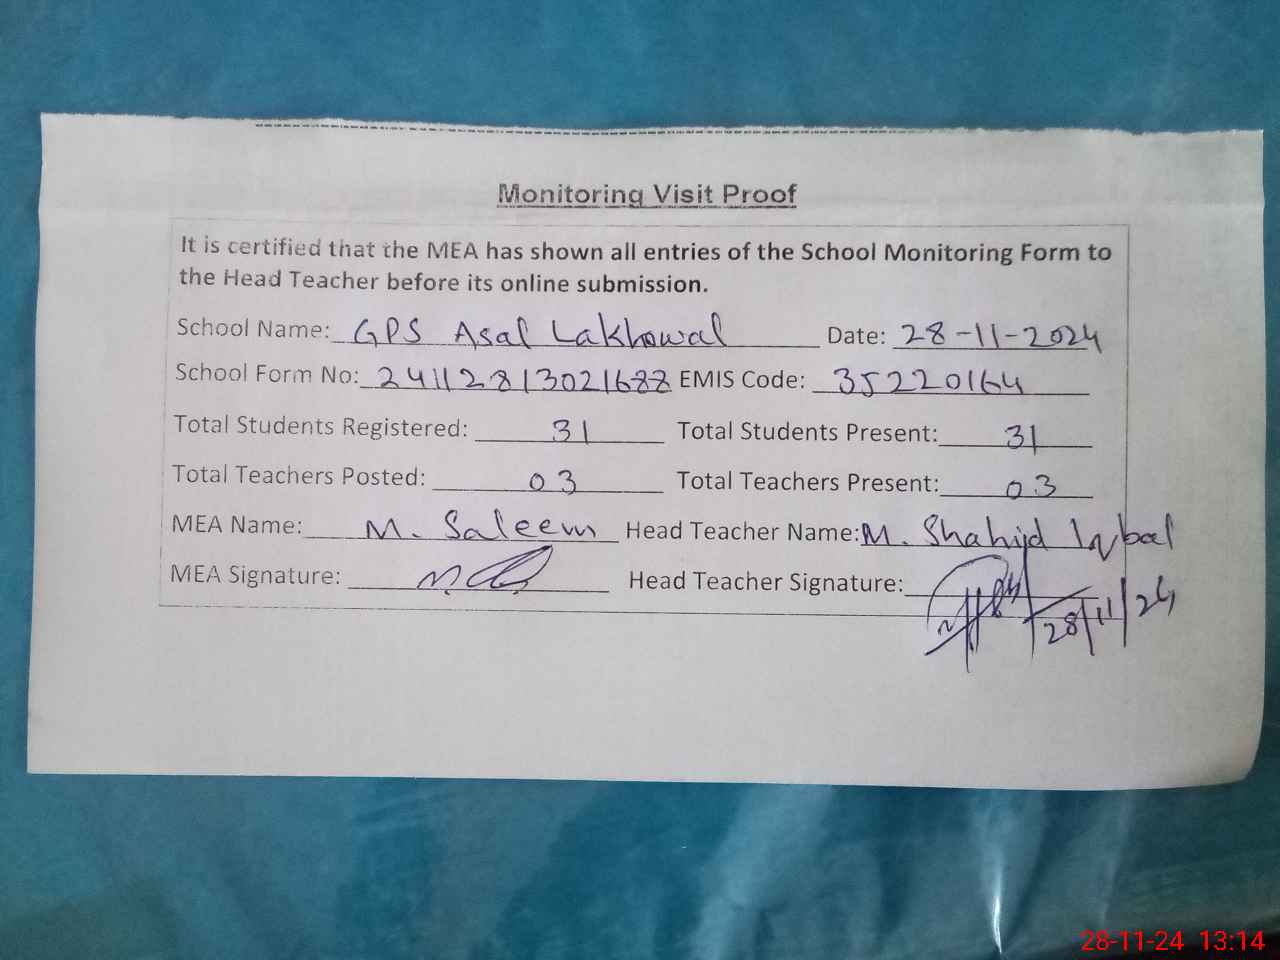 Monitoring Visit Proof
It is certified that the MEA has shown all entries of the School Monitoring Form to
the Head Teacher before its online submission.
School Name: GPS Asal Lakhowal Date: 28-11-2024
School Form No: 24112813021688 EMIS Code: 35220164
Total Students Registered: 31 Total Students Present: 31
Total Teachers Posted: 03 Total Teachers Present: 03
MEA Name: M. Saleem Head Teacher Name: M. Shahid Iqbal
MEA Signature: Head Teacher Signature:
28/11/24
28-11-24 13:14